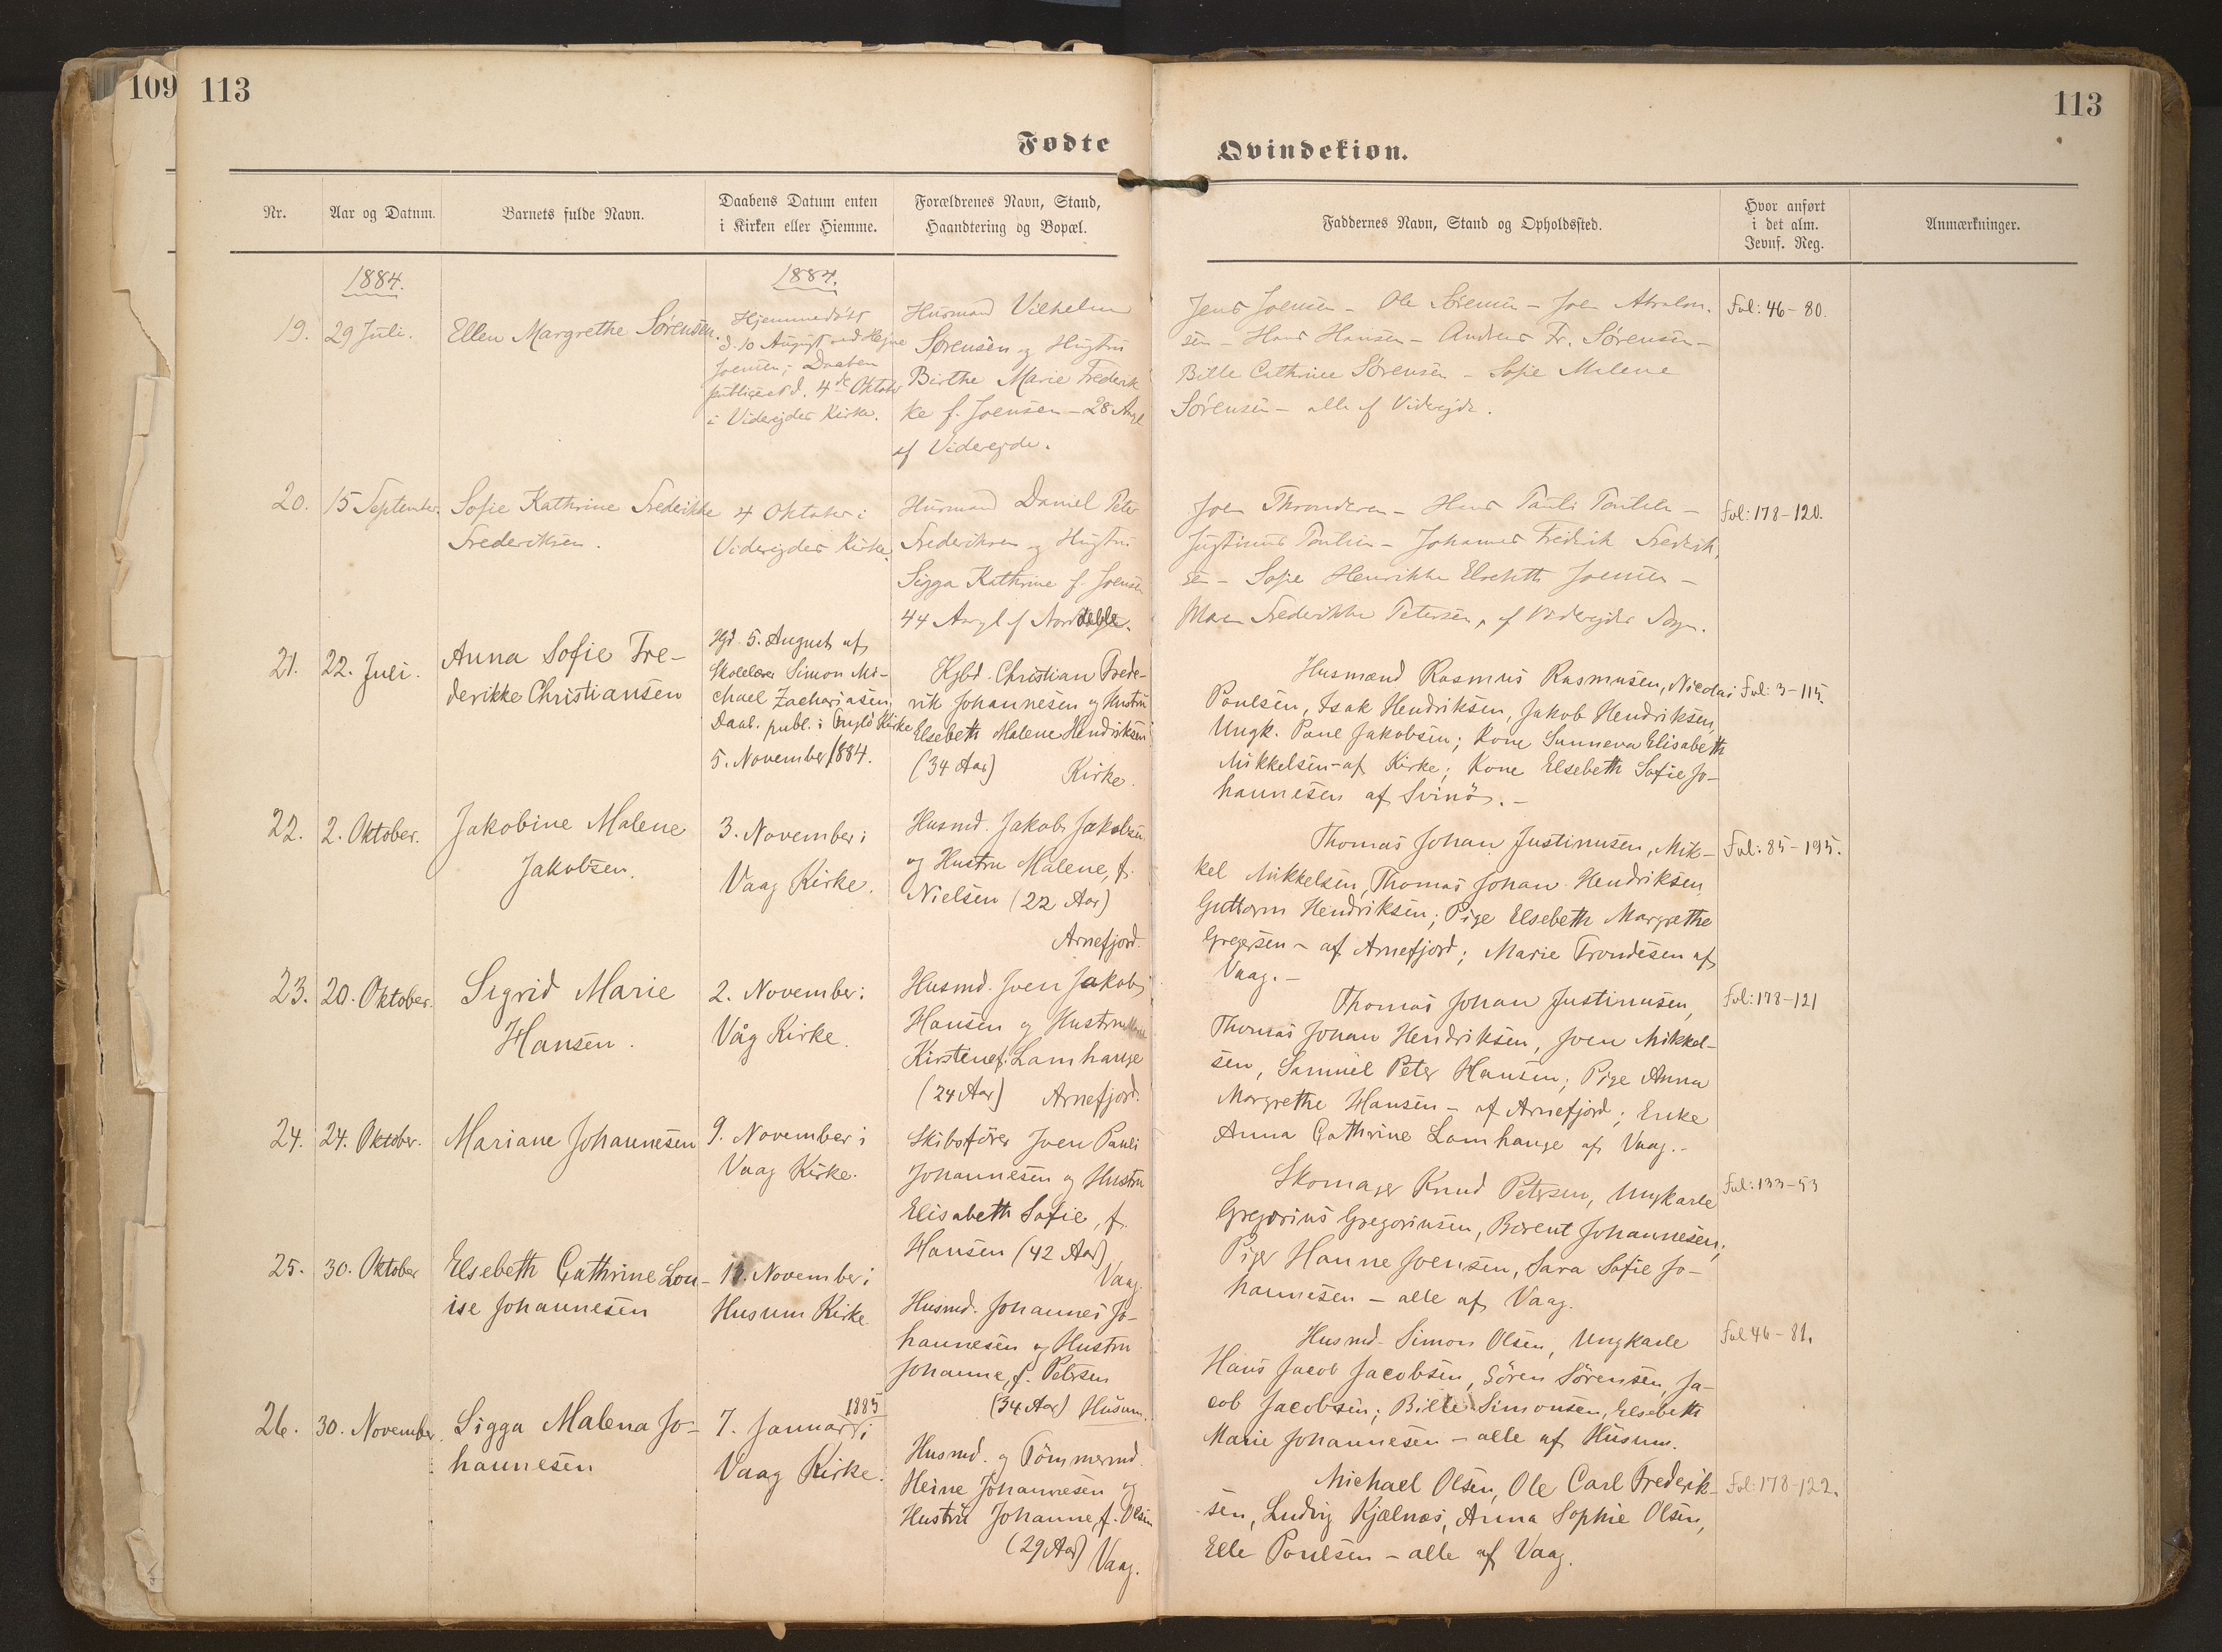 109
113
113
Fødte
Qvindekiøn.
Nr.
Aar og Datum.
Barnets fulde Navn.
Daabens Datum enten
i Kirken eller Hiemme.
Forældrenes Navn, Stand,
Haandtering og Bopæl.
Faddernes Navn, Stand og Opholdssted.
Hvor anført
i det alm.
Jevnf. Reg.
Anmærkninger.
1884.
1884.
19.
29 Juli.
Ellen Margrethe Sørensen.
Hjemmedøbt
d. 10 August ved Hejne
Joensen; Daaben
publiceret d. 4de Oktober
i Viderejdes Kirke.
Husmand Vilhelm
Sørensen og Hustru
Birthe Marie Frederik
ke f. Joensen - 28 Aar gl
af Viderejde.
Jens Joensen - Ole Sørensen - Joen Absalon-
sen - Hans Hansen - Andreas Fr. Sørensen -
Bille Cathrine Sørensen - Sofie Malene
Sørensen - alle af Viderejde.
Fol: 46-80.
20.
15 September.
Sofie Kathrine Frederikke
Frederiksen.
4 Oktober i
Viderejdes Kirke.
Husmand Daniel Peter
Frederiksen og Hustru
Sigga Kathrine f. Joensen
44 Aar gl af Norddeble.
Joen - Hans Pauli Poulsen -
Justinus Poulsen - Johannes Fredrik Frederik-
sen - Sofie Henrikke Elsebeth Joensen -
Maren Frederikke Petersen, af Viderejdes Sogn.
Fol: 178-120.
21.
22. Juli.
Anna Sofie Fre-
derikke Christiansen
Hjd. 5. August af
Skolelærer Simon Mi-
chael Zachariasen,
Daab. publ. i Fuglø Kirke
5. November 1884.
Kjbd. Christian Frede-
rik Johannesen og Hustru
Elsebeth Malene Hendriksen
(34 Aar) Kirke.
Husmænd Rasmus Rasmusen, Nicolai
Poulsen, Isak Hendriksen, Jakob Hendriksen,
Ungk. Poul Jakobsen; Kone Sunneva Elisabeth
Mikkelsen - af Kirke; Kone Elsebeth Sofie Jo-
hannesen af Svinö. -
Fol: 3-115.
22.
2. Oktober.
Jakobine Malene
Jakobsen.
3. November i
Vaag Kirke.
Husmd. Jakob Jakobsen
og Hustru Malene, f.
Nielsen (22 Aar)
Arnefjord.
Thomas Johan Justinusen, Mik-
kel Mikkelsen, Thomas Johan Hendriksen
Guttorm Hendriksen; Pige Elsebeth Margrethe
Gregersen - af Arnefjord; Marie Trondesen af
Vaag. -
Fol: 85-195.
23.
20. Oktober.
Sigrid Marie
Hansen.
2. November i
Våg Kirke.
Husmd. Joen Jakob
Hansen og Hustru
Kirstine f. Lamhauge
(24 Aar) Arnefjord.
Thomas Johan Justinusen,
Thomas Johan Hendriksen, Joen Mikkel-
sen, Samuel Peter Hansen; Pige Anna
Margrethe Hansen - af Arnefjord; Enke
Anna Cathrine Lamhauge af Vaag. -
Fol: 178-121
24.
24. Oktober.
Mariane Johannesen
9. November i
Vaag Kirke.
Skibsfører Joen Pauli
Johannesen og Hustru
Elisabeth Sofie, f.
Hansen (42 Aar)
Vaag.
Skomager Knud Petersen, Ungkarle
Gregorius Gregoriusen, Berent Johannesen;
Piger Hanne Joensen, Sara Sofie Jo-
hannesen - alle af Vaag.
Fol: 133-53
25.
30. Oktober
Elsebeth Cathrine Lou-
ise Johannesen
November i
Husum Kirke
Husmd. Johannes Jo-
hannesen og Hustru
Johanne, f. Petersen
(34 Aar) Husum.
Husmd. Simon Olsen, Ungkarle
Hans Jacob Jacobsen, Sören Sörensen, Ja-
cob Jacobsen; Bille Simonsen, Elsebeth
Marie Johannesen - alle af Husum.
Fol 46-81.
26.
30. November.
Sigga Malena Jo-
hannesen
1885
7. Januar i
Vaag Kirke.
Husmd. og Tömmermd.
Heine Johannesen og
Hustru Johanne, f. Olsen
(29 Aar) Vaag.
Michael Olsen, Ole Carl Frederik-
sen, Ludvig Kjølnæs, Anna Sophie Olsen,
Elle Poulsen - alle af Vaag.
Fol: 178-122.